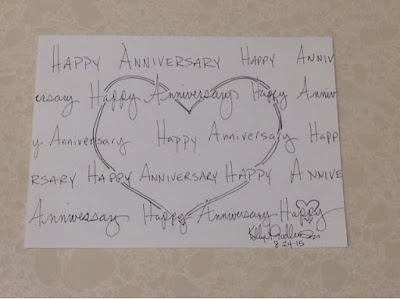 HAPPY ANNIVERSARY HAPPY ANNIV
ersary Happy Anniversary Happy Anniv
y Anniversary Happy Anniversary Happ
RSARY HAPPY ANNIVERSARY HAPPY ANNIVE
Anniversary Happy Anniversary Happy
8-24-15